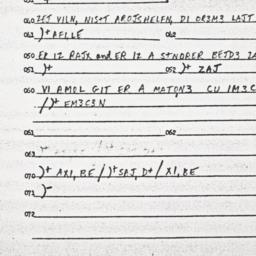 040 ZEJ VILN, NIS+T AROJSHELFN, DI OR3M3 LAJT
041 )+ AFLLE 042
050 ER IZ RAJX and ER IZ A S+NORER BEJD3 ZA
051 )+ 052 )+ ZAJ
060 VI AMOL GIT ER A MATON3 CU IM3C
/)+ EM3C3N
061 062
063 )+
070 )+ AXI, BE /)+ SAJ, D+/ XI, BE
071 )-
072